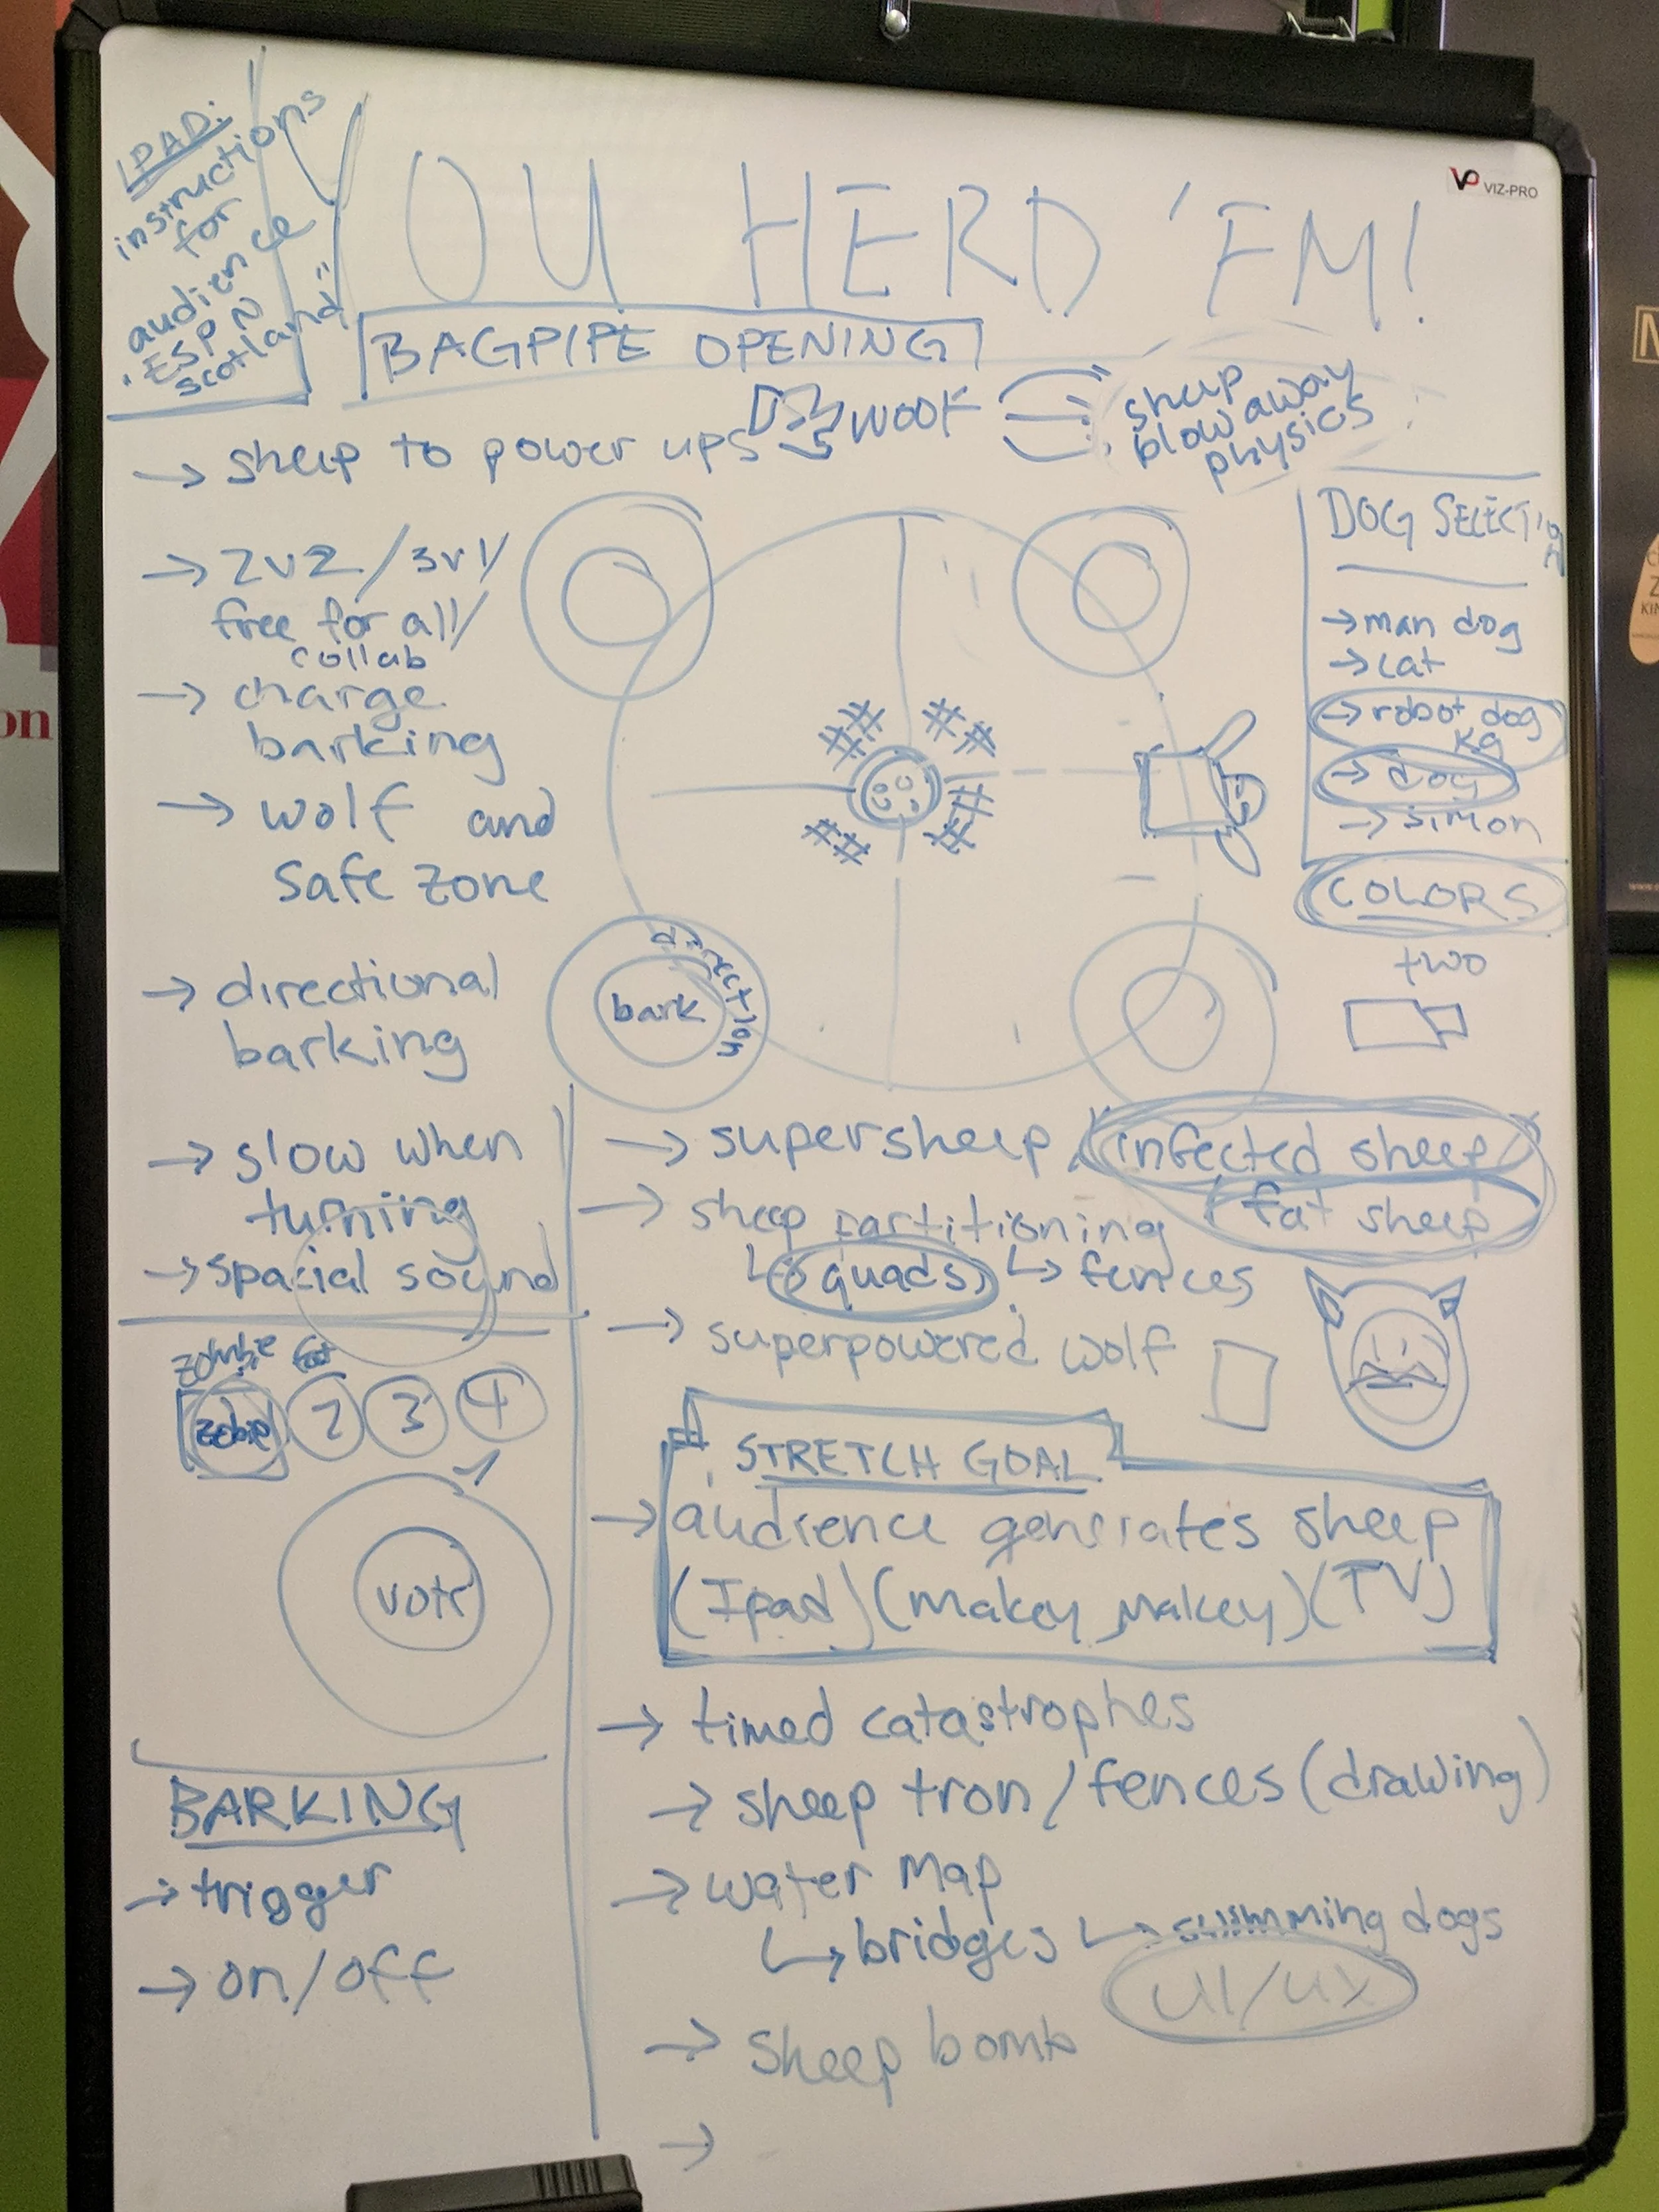 IPAD:
instructions
for
audience
"ESPN
scotland"
YOU HERD 'EM!
VP VIZ-PRO
BAGPIPE OPENING
WOOF
sheep
blow away
physics
→ sheep to power ups
→ 2v2/3v1/
free for all/
collab
→ charge
barking
→ wolf and
safe zone
→ directional
barking
→ slow when
turning
→ spacial sound
direction
bark
DOG SELECTION
→ man dog
→ cat
→ robot dog
K9
→ dog
→ simon
COLORS
two
→ supersheep / infected sheep /
/ fat sheep
→ sheep partitioning
↳ quads ↳ fences
→ superpowered wolf
zombie fat
2 3 4
vote
STRETCH GOAL
→ audience generates sheep
(Ipad) (makey makey) (TV)
→ timed catastrophes
→ sheep tron/fences (drawing)
→ water map
↳ bridges ↳ swimming dogs
UI/UX
→ sheep bomb
→
BARKING
→ trigger
→ on/off
on